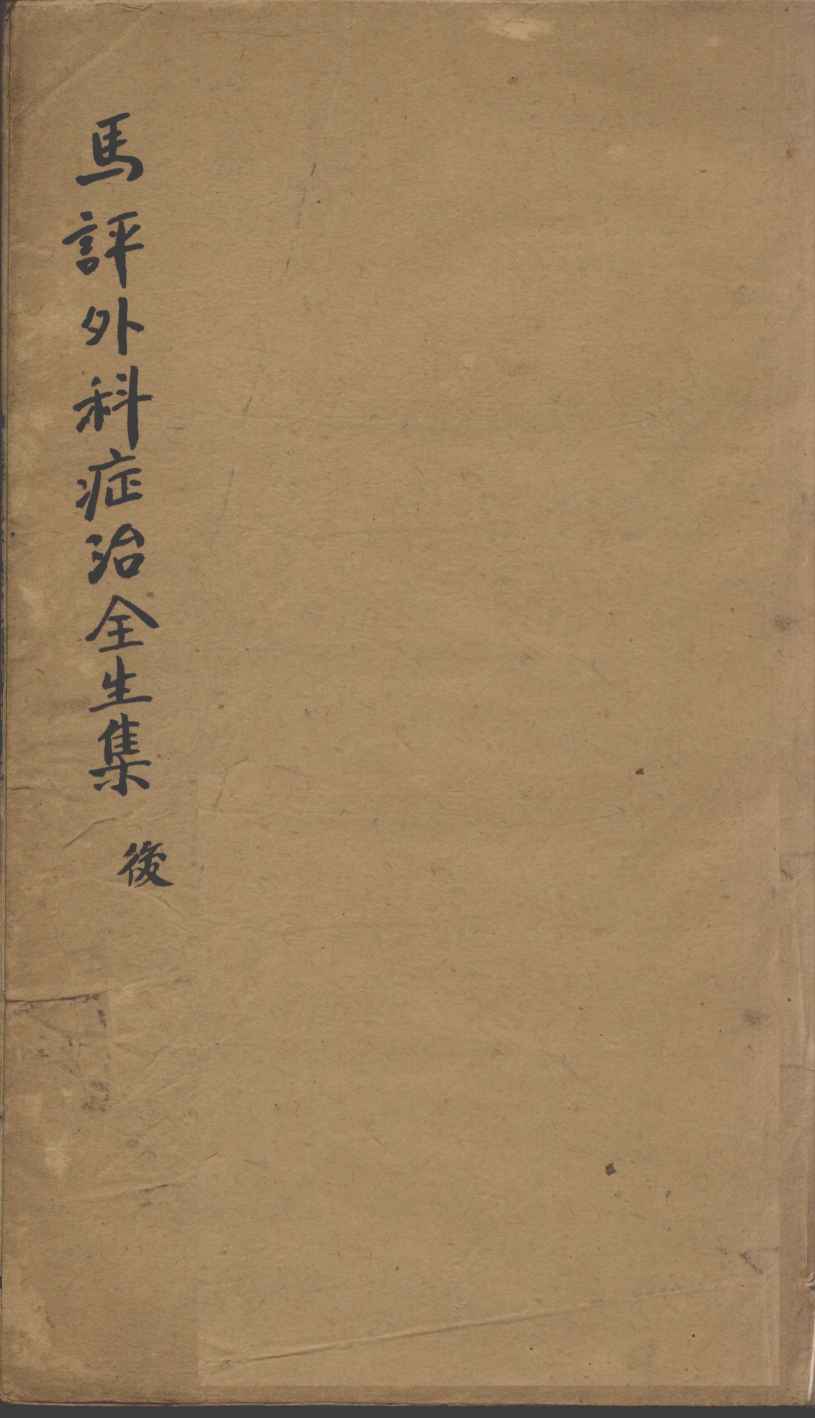 馬評外科症治全生集
後